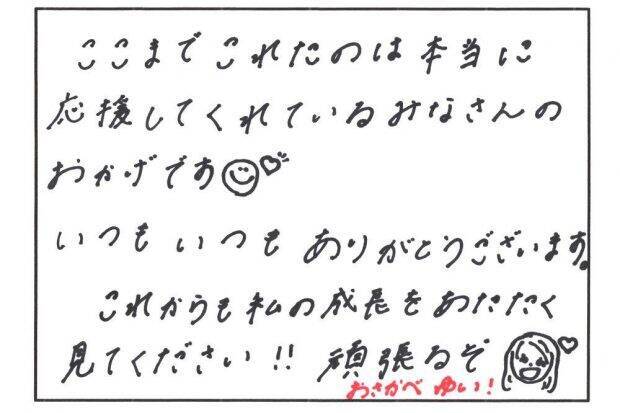 ここまでこれたのは本当に
応援してくれているみなさんの
おかげです
いつもいつもありがとうございます。
これからも私の成長をあたたく
見てください!! 頑張るぞ
おさかべ ゆい!